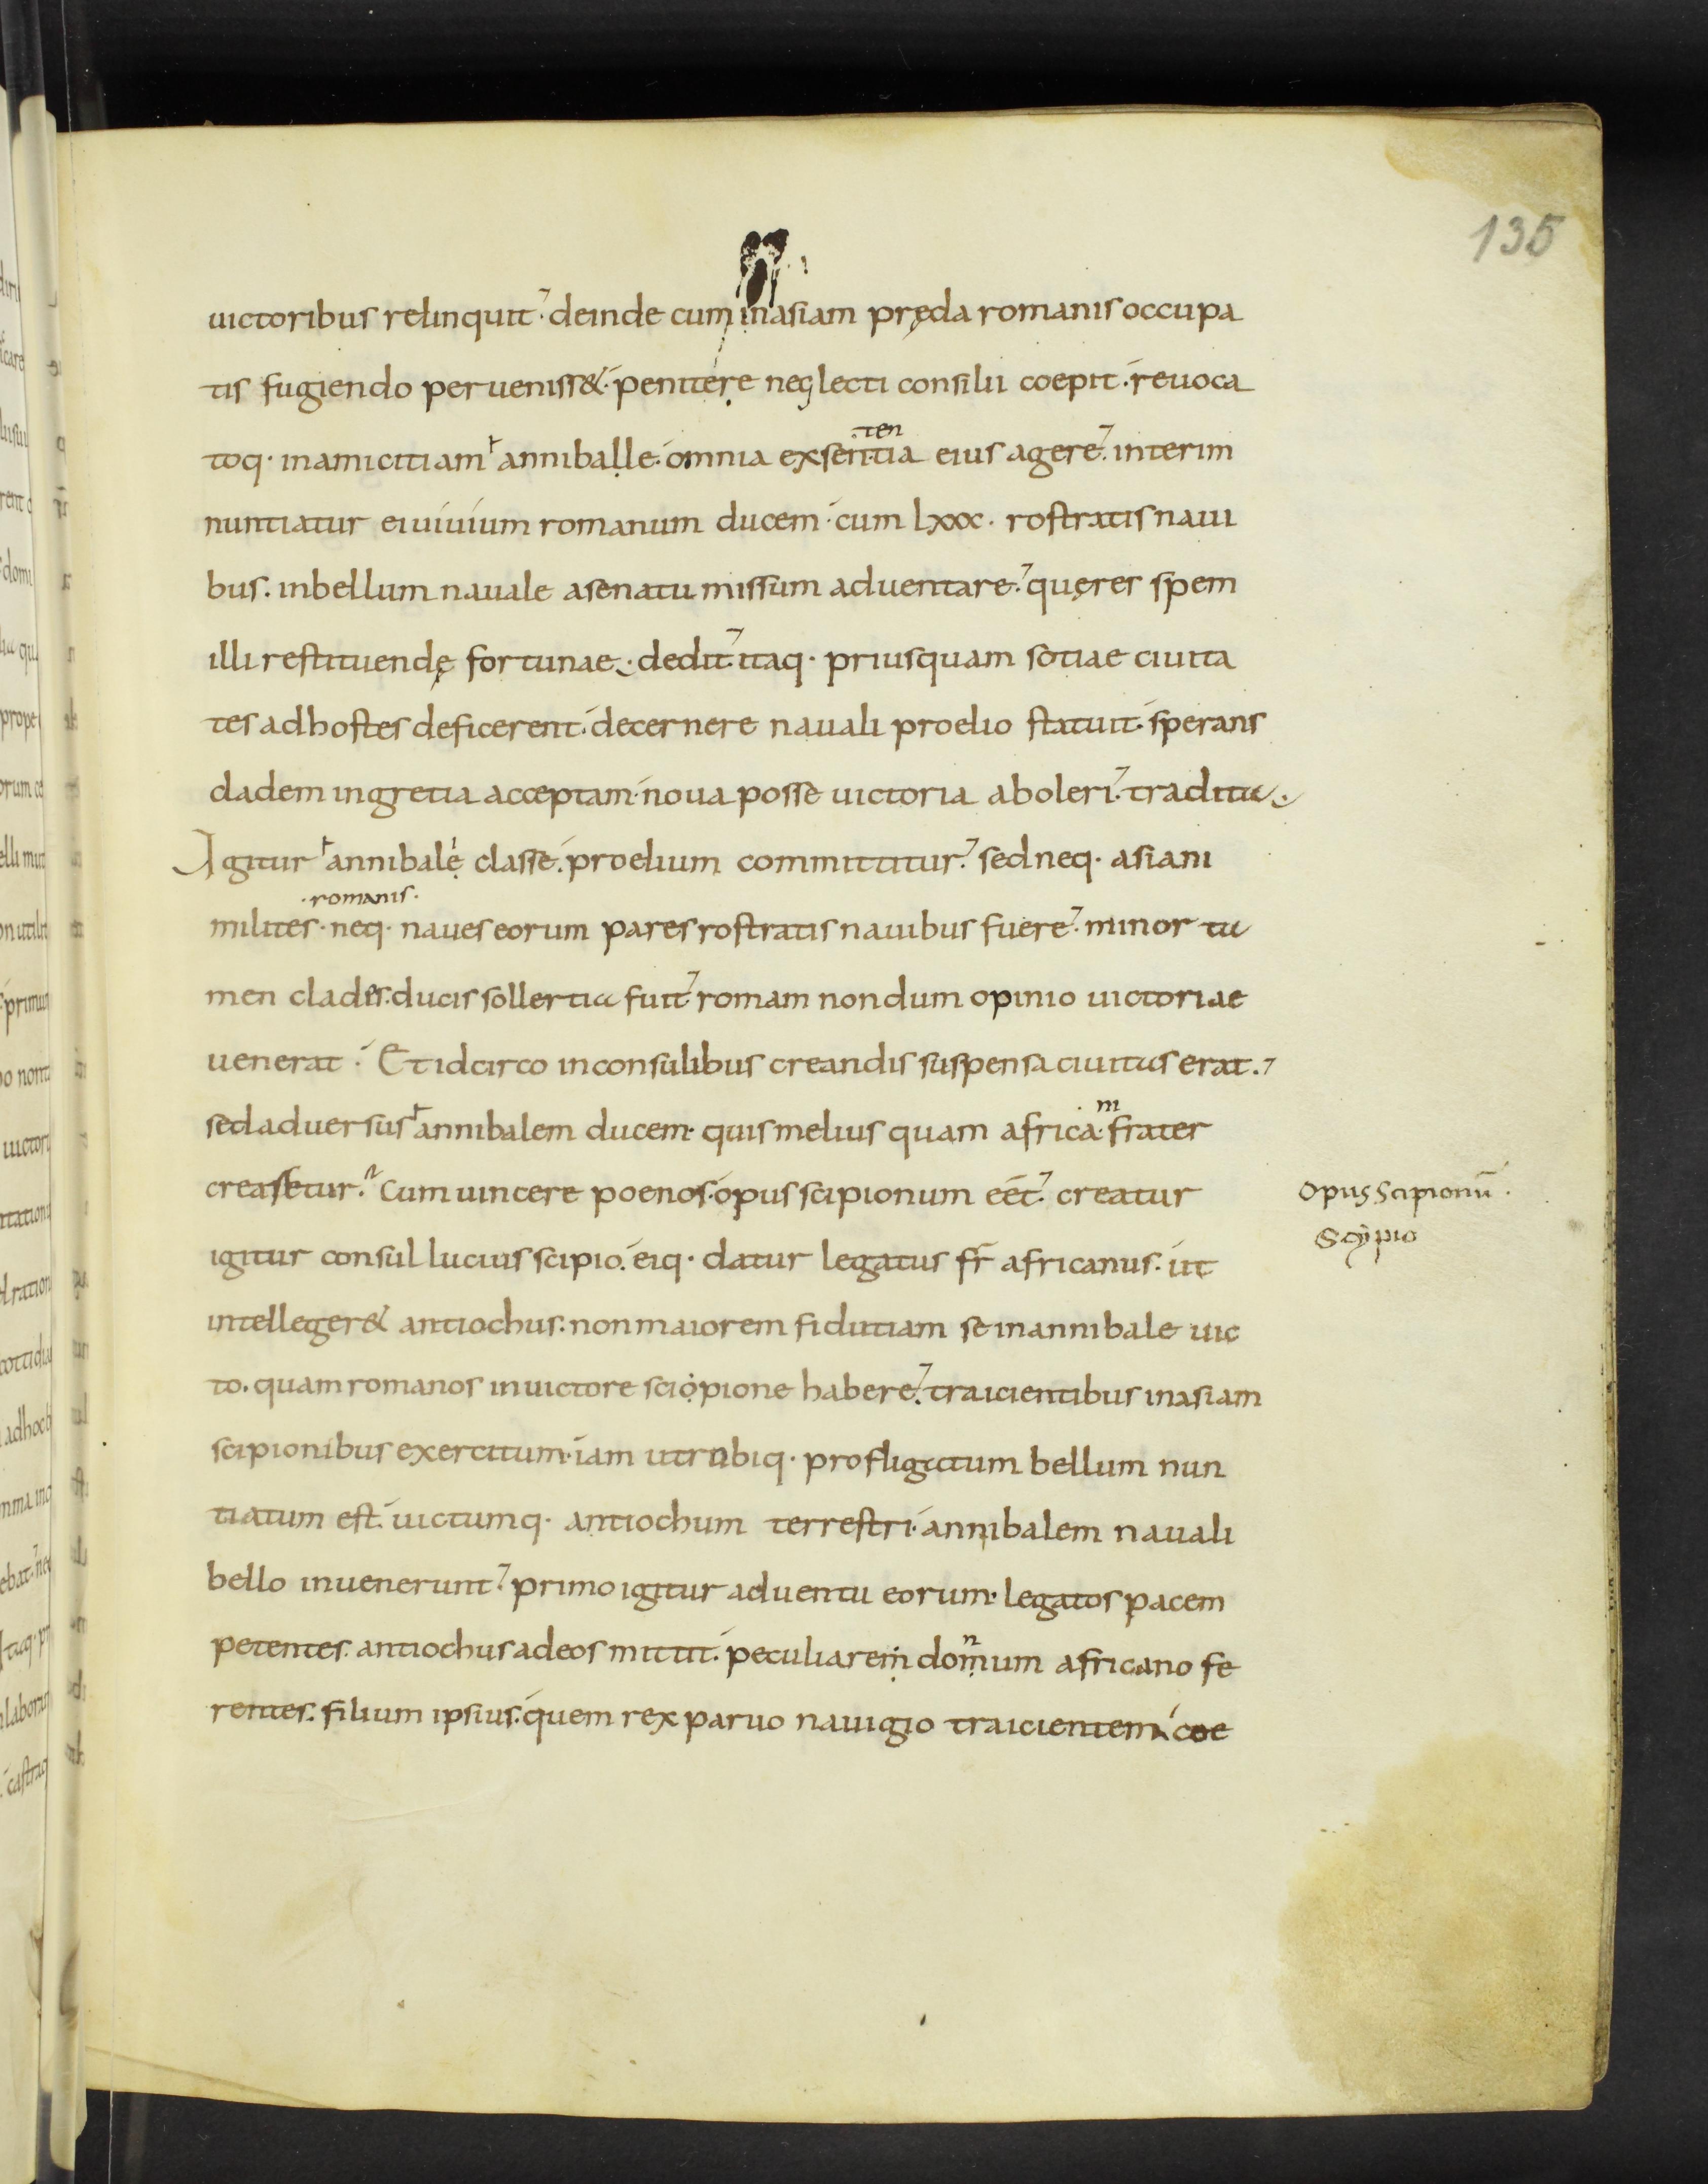 135
uictoribus relinquit. deinde cum inasiam pręda romanis occupa
tis fugiendo perueniss&. penitere neglecti consilii coepit. reuoca
toq. inamicitiam anniballe. omnia exsentia eius agere. interim
ten
nuntiatur eiuiuium romanum ducem. cum lxxx. rostratis naui
bus. inbellum nauale asenatu missum aduentare. quęrer spem
illi restituendę fortunae. dedit. itaq. priusquam sotiae ciuita
tes adhostes deficerent. decernere nauali proelio statuit. sperans
cladem ingretia acceptam. noua posse uictoria aboleri. tradita.
Igitur annibale classe. proelium committitur. sedneq. asiani
romanis.
milites. neq. naues eorum pares rostratis nauibus fuere. minor ta
men clades. ducis sollertia fuit. romam nondum opinio uictoriae
uenerat. Et idcirco inconsulibus creandis suspensa ciuitas erat.
sedaduersus annibalem ducem. quis melius quam africa frater
m
creasetur. Cum uincere poenos. opus scipionum eet. creatur
opus scipionū.
igitur consul lucius scipio. eiq. datur legatus fr̄ africanus. ut
Scypio
intelleger& antiochus. nonmaiorem fidutiam se inannibale uic
to. quam romanos inuictore sciopione habere. traicientibus inasiam
scipionibus exercitum. iam utrubiq. profligatum bellum nun
tiatum est. uictumq. antiochum terrestri. annibalem nauali
bello inuenerunt. primo igitur aduentu eorum. legatos pacem
petentes. antiochus adeos mittit. peculiarem domum africano fe
n
rentes. filium ipsius. quem rex paruo nauigio traicientem. coe